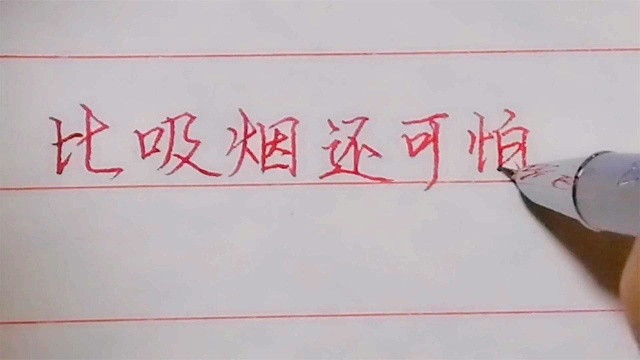 比吸烟还可怕